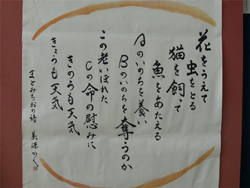 花をうえて
虫をとる
猫を飼って
魚をあたえる
Aのいのちを養い
Bのいのちを奪うのか
この老いぼれた
Cの命の慰みに
きのうも天気
きょうも天気
まどみちおの詩